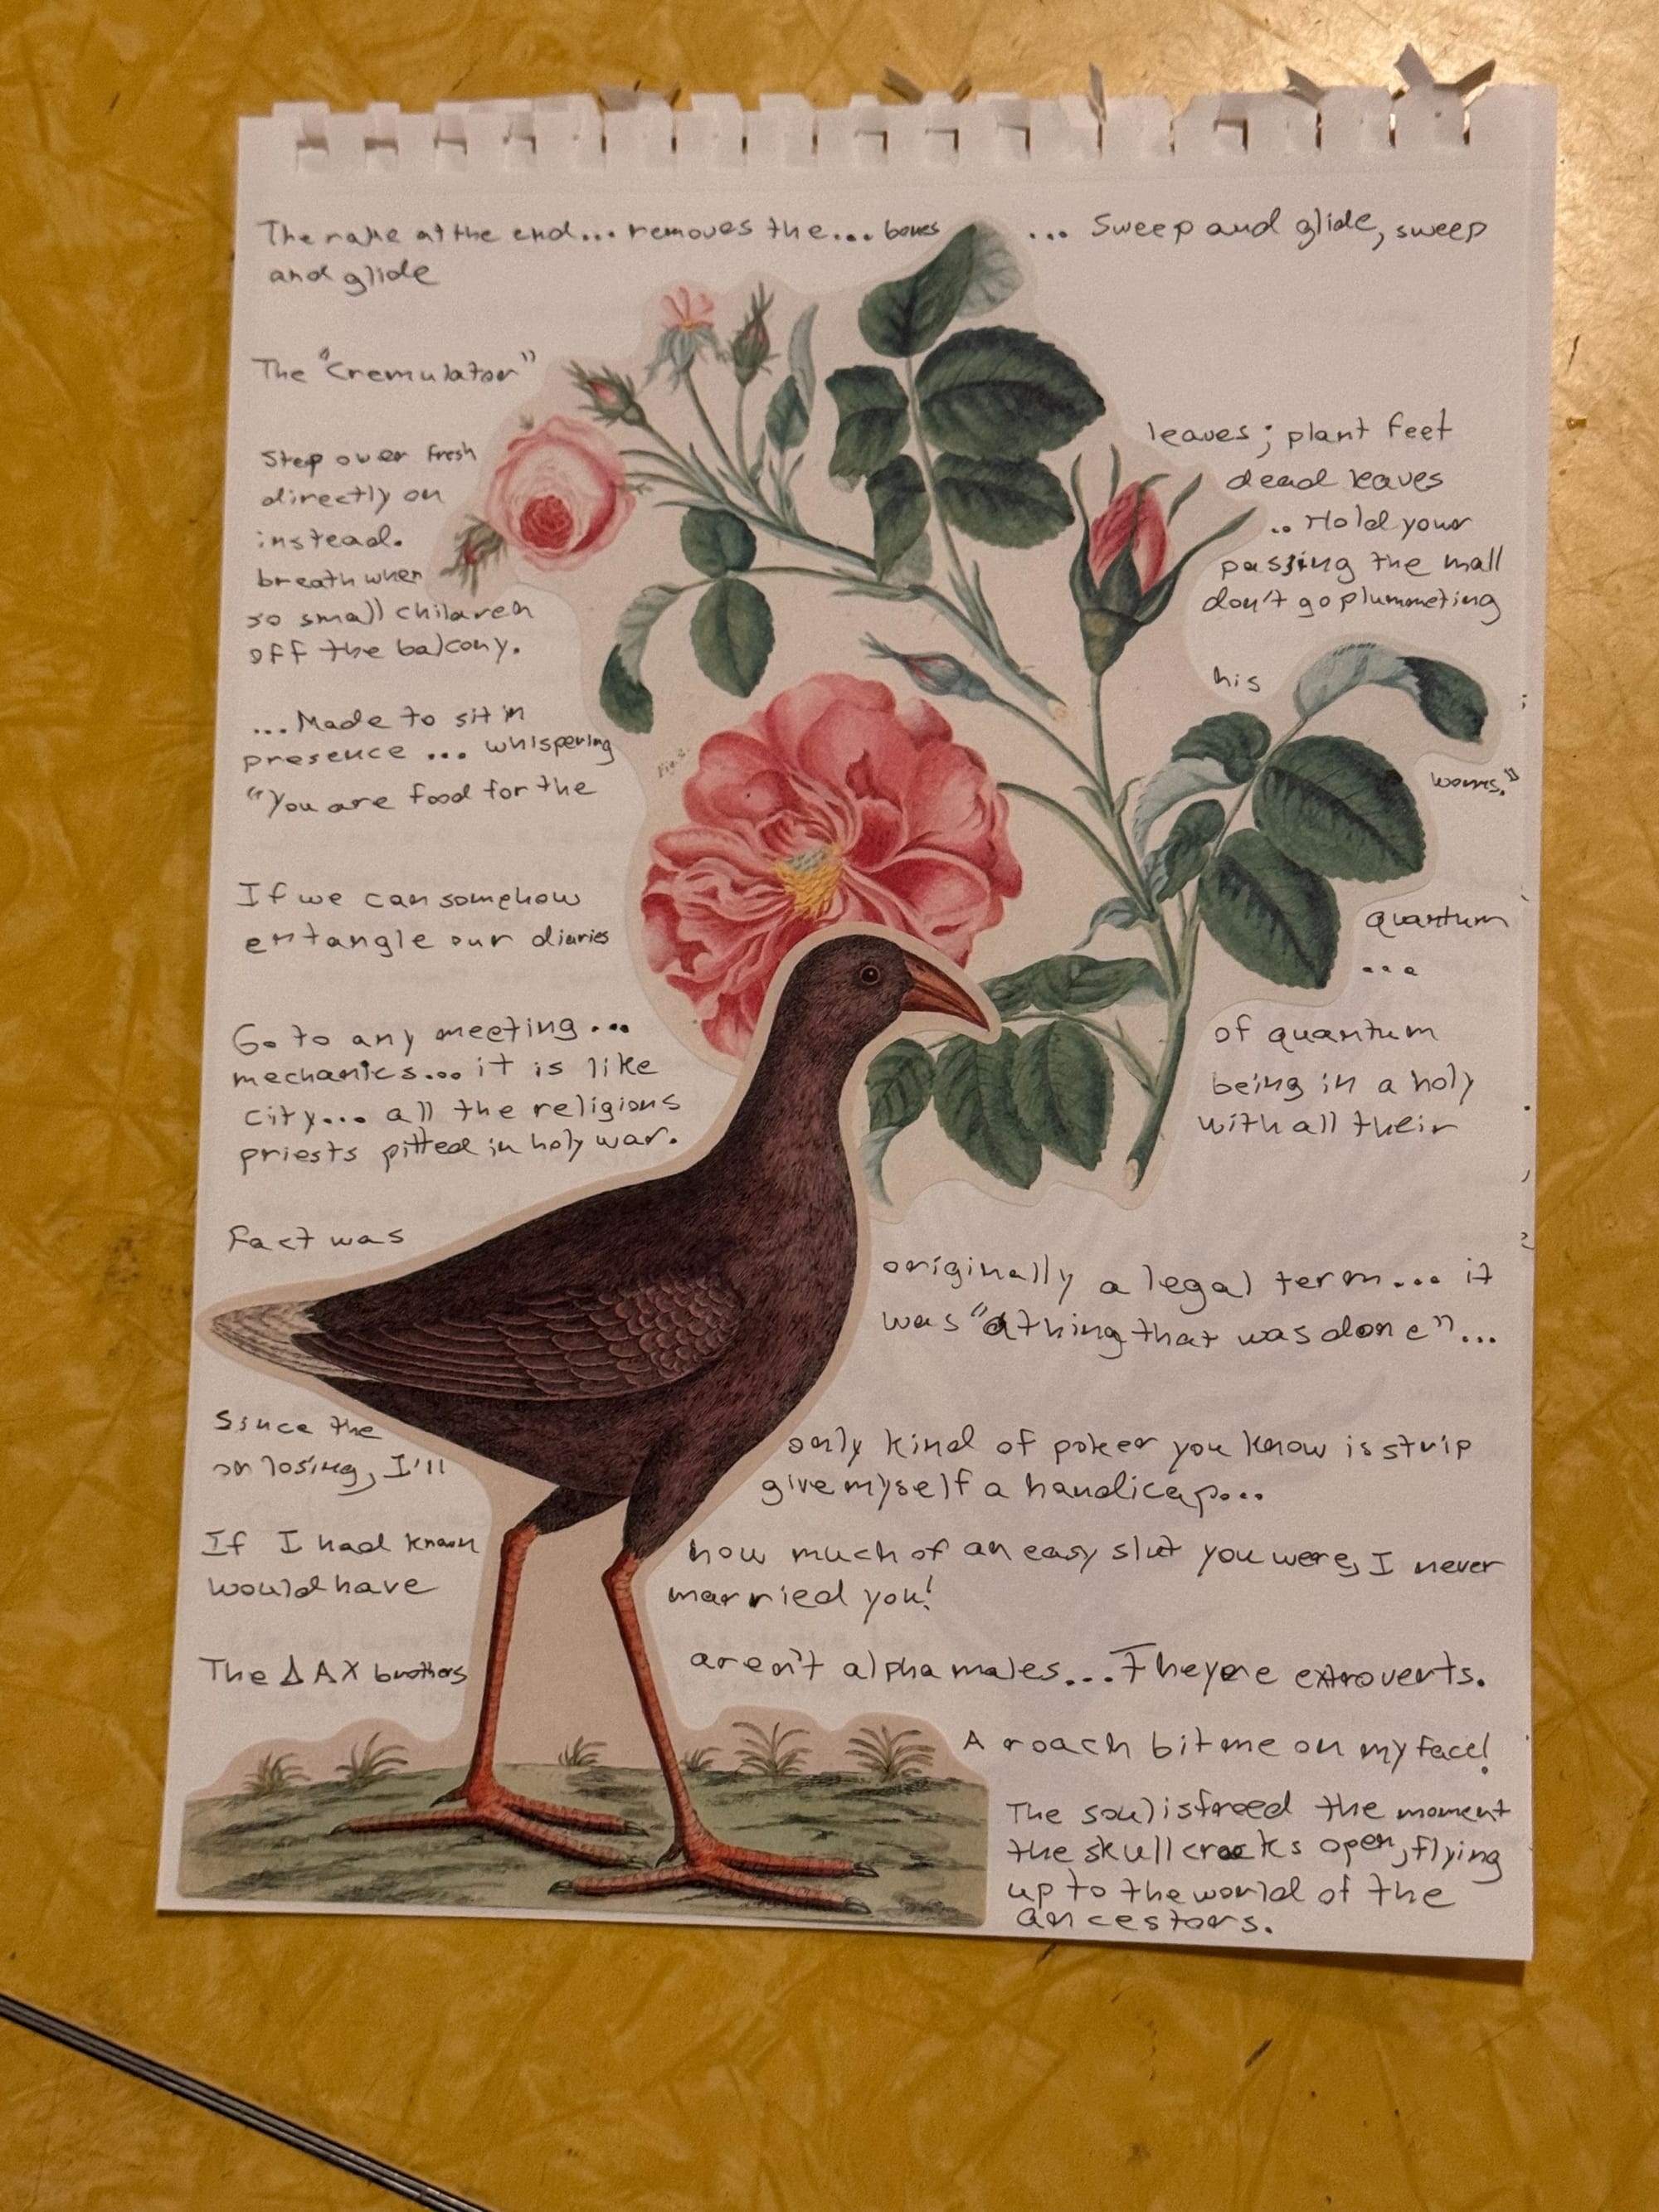 The rake at the end... removes the... bones ... Sweep and glide, sweep
and glide
The "Cremulator"
Step over fresh leaves; plant feet
directly on dead leaves
instead. .. Hold your
breath when passing the mall
so small children don't go plummeting
off the balcony.
...Made to sit in his
presence ... whispering
"You are food for the worms."
If we can somehow quantum
entangle our diaries ...
Go to any meeting... of quantum
mechanics... it is like being in a holy
city... all the religions with all their
priests pitted in holy war.
Fact was originally a legal term... it
was "a thing that was done"...
Since the only kind of poker you know is strip
or losing, I'll give myself a handicap...
If I had known how much of an easy slut you were, I never
would have married you!
The ΔAX brothers aren't alpha males... They're extroverts.
A roach bit me on my face!
The soul is freed the moment
the skull cracks open, flying
up to the world of the
ancestors.
Fig. 2.